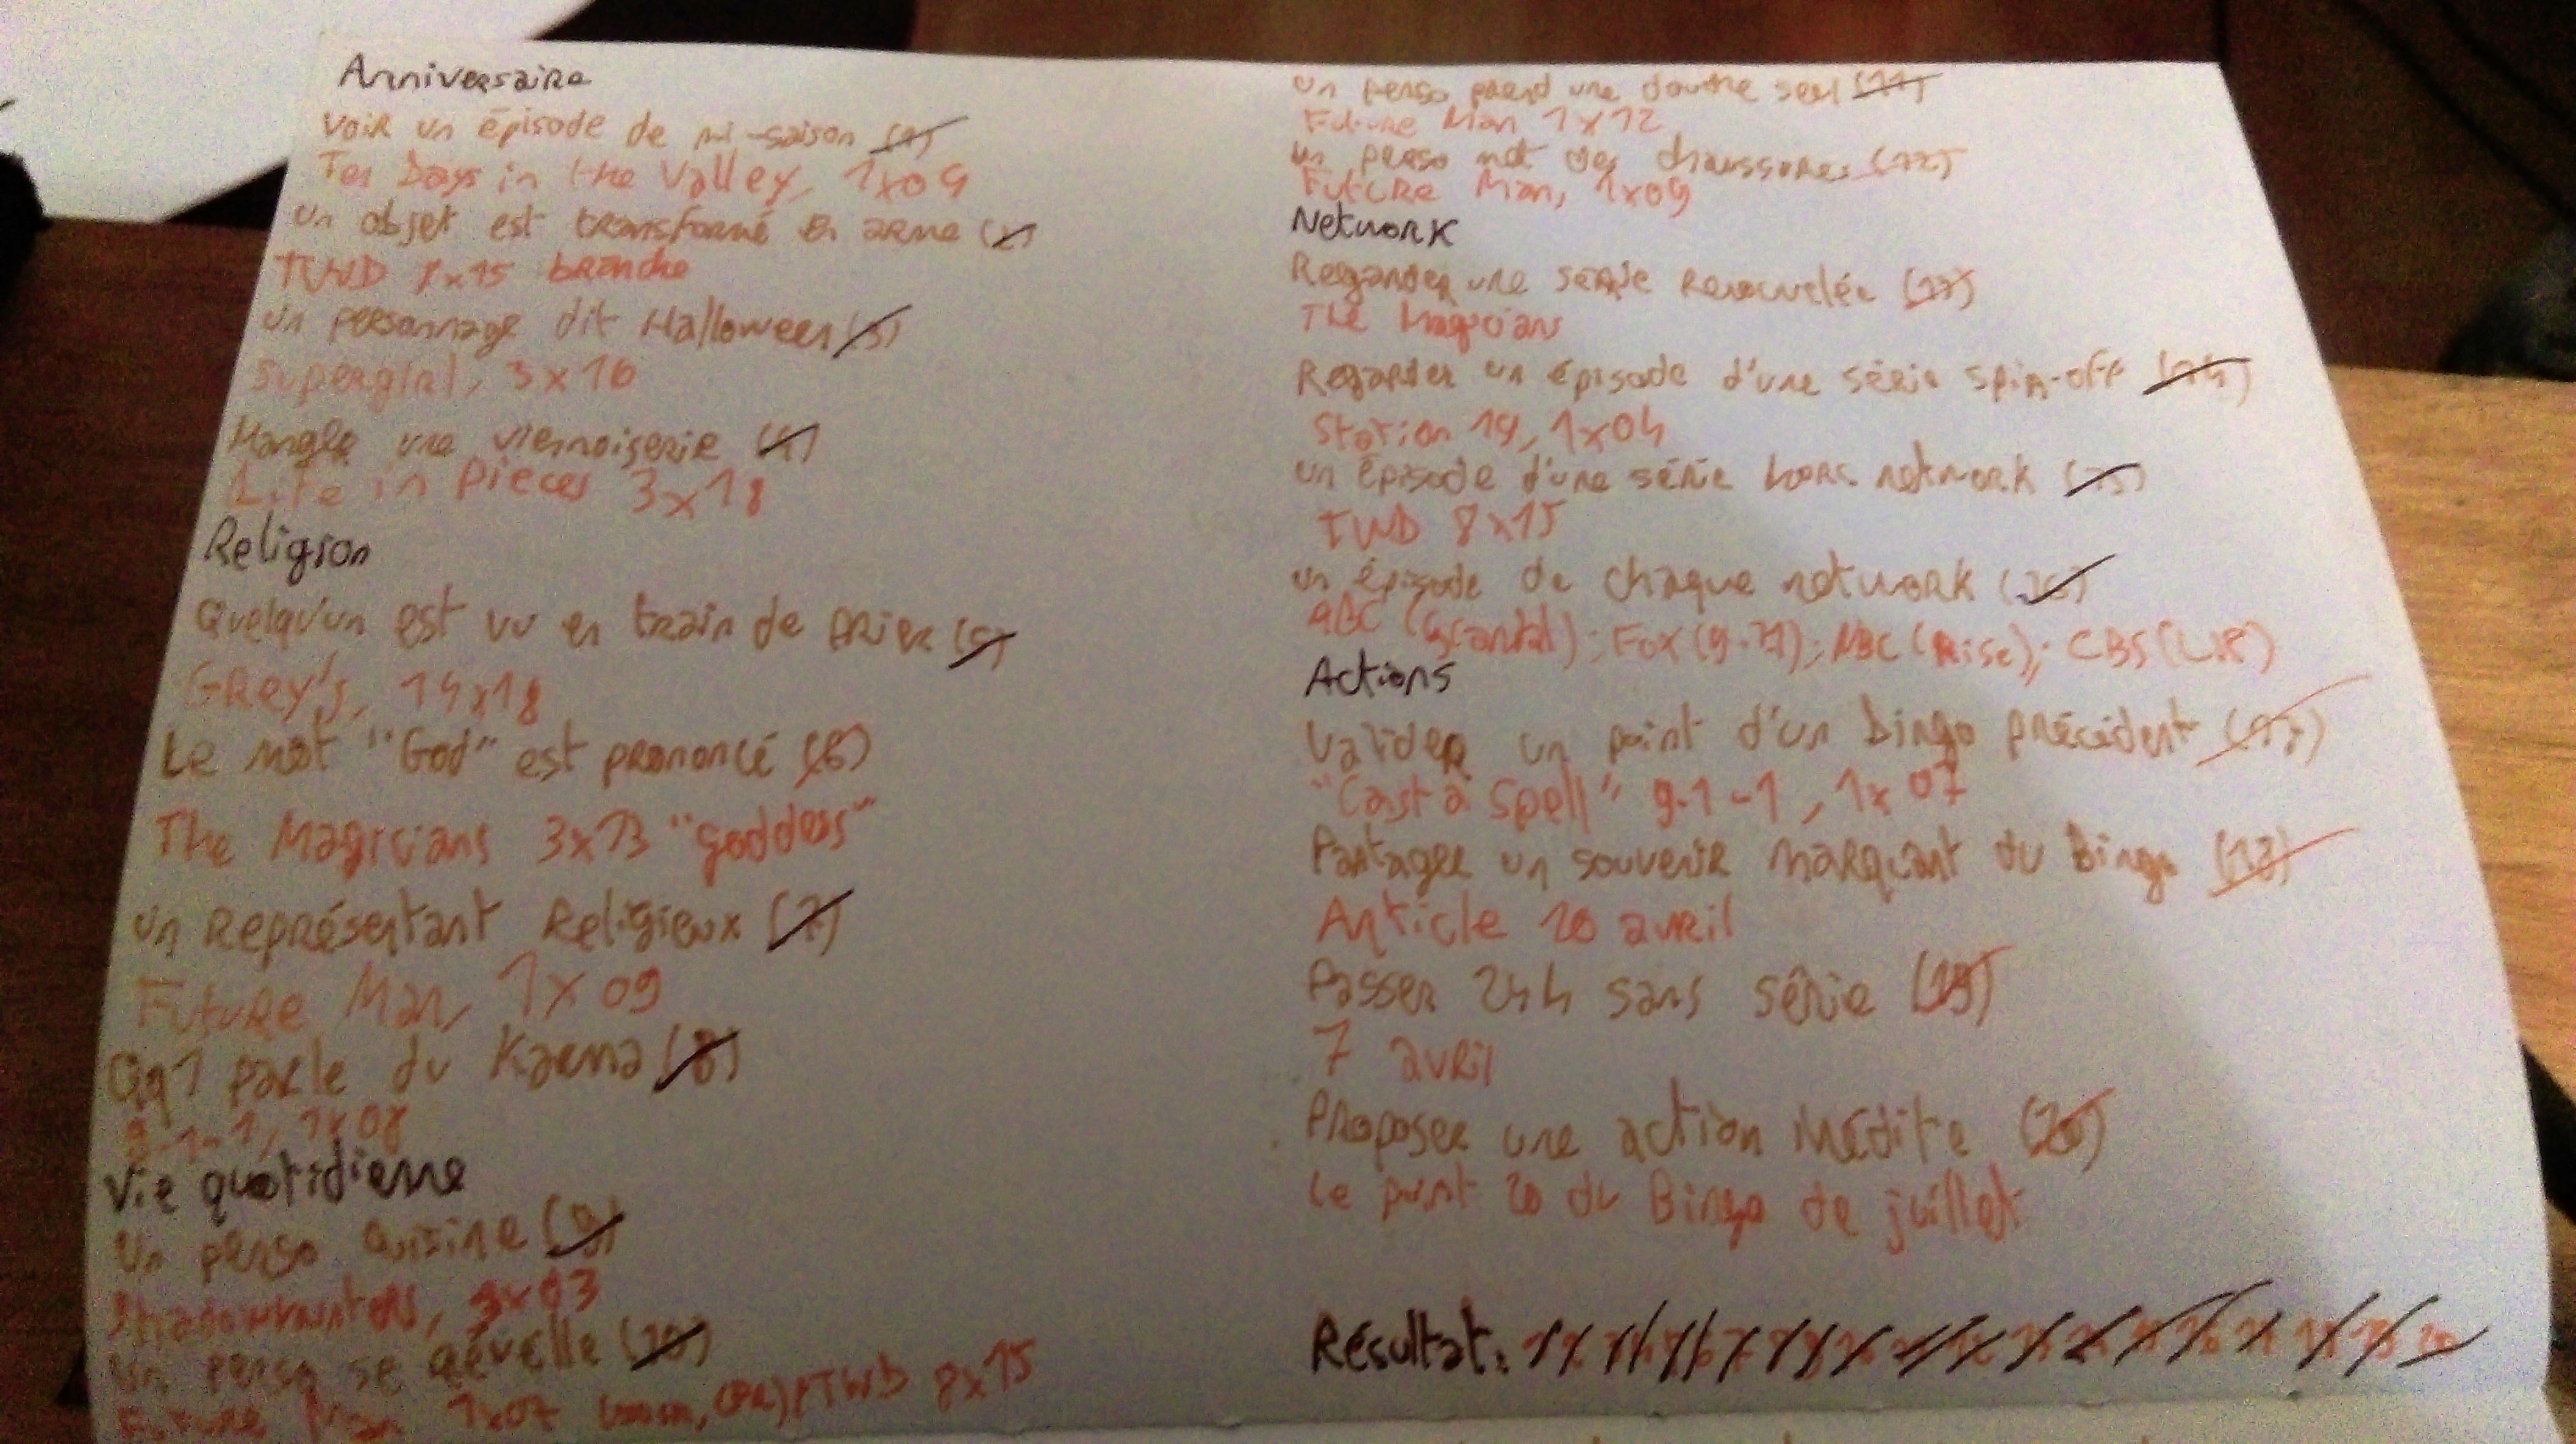 Anniversaire
Voir un épisode de mi-saison (1)
Ten Days in the Valley, 1x09
Un objet est transformé en arme (2)
TWD 8x15 branche
Un personnage dit Halloween (3)
Supergirl, 3x16
Mangle une viennoiserie (4)
Life in Pieces 3x18
Religion
Quelqu'un est vu en train de prier (5)
Grey's, 14x18
Le mot "God" est prononcé (6)
The Magicians 3x13 "goddess"
Un représentant religieux (7)
Future Man, 1x09
Qq1 parle du Karma (8)
9-1-1, 1x08
Vie quotidienne
Un perso cuisine (9)
Shadowhunters, 3x03
Un perso se réveille (10)
Future Man 1x07 TWD 8x15
Un perso prend une douche seul (11)
Future Man 1x12
Un perso met des chaussures (12)
Future Man, 1x09
Network
Regarder une série renouvelée (13)
The Magicians
Regarder un épisode d'une série spin-off (14)
Station 19, 1x04
Un épisode d'une série hors network (15)
TWD 8x15
Un épisode de chaque network (16)
ABC (Scandal); Fox (9-11); NBC (Rise); CBS
Actions
Valider un point d'un bingo précédent (17)
"Cast a Spell" 9-1-1, 1x07
Partager un souvenir marquant du Bingo (18)
Article 20 avril
Passer 24h sans série (19)
7 avril
Proposer une action inédite (20)
Le point 20 du Bingo de juillet
Résultat: